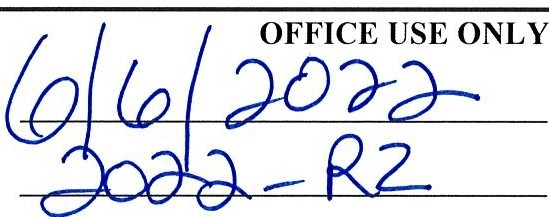 OFFICE USE ONLY
6/6/2022
2022-RZ